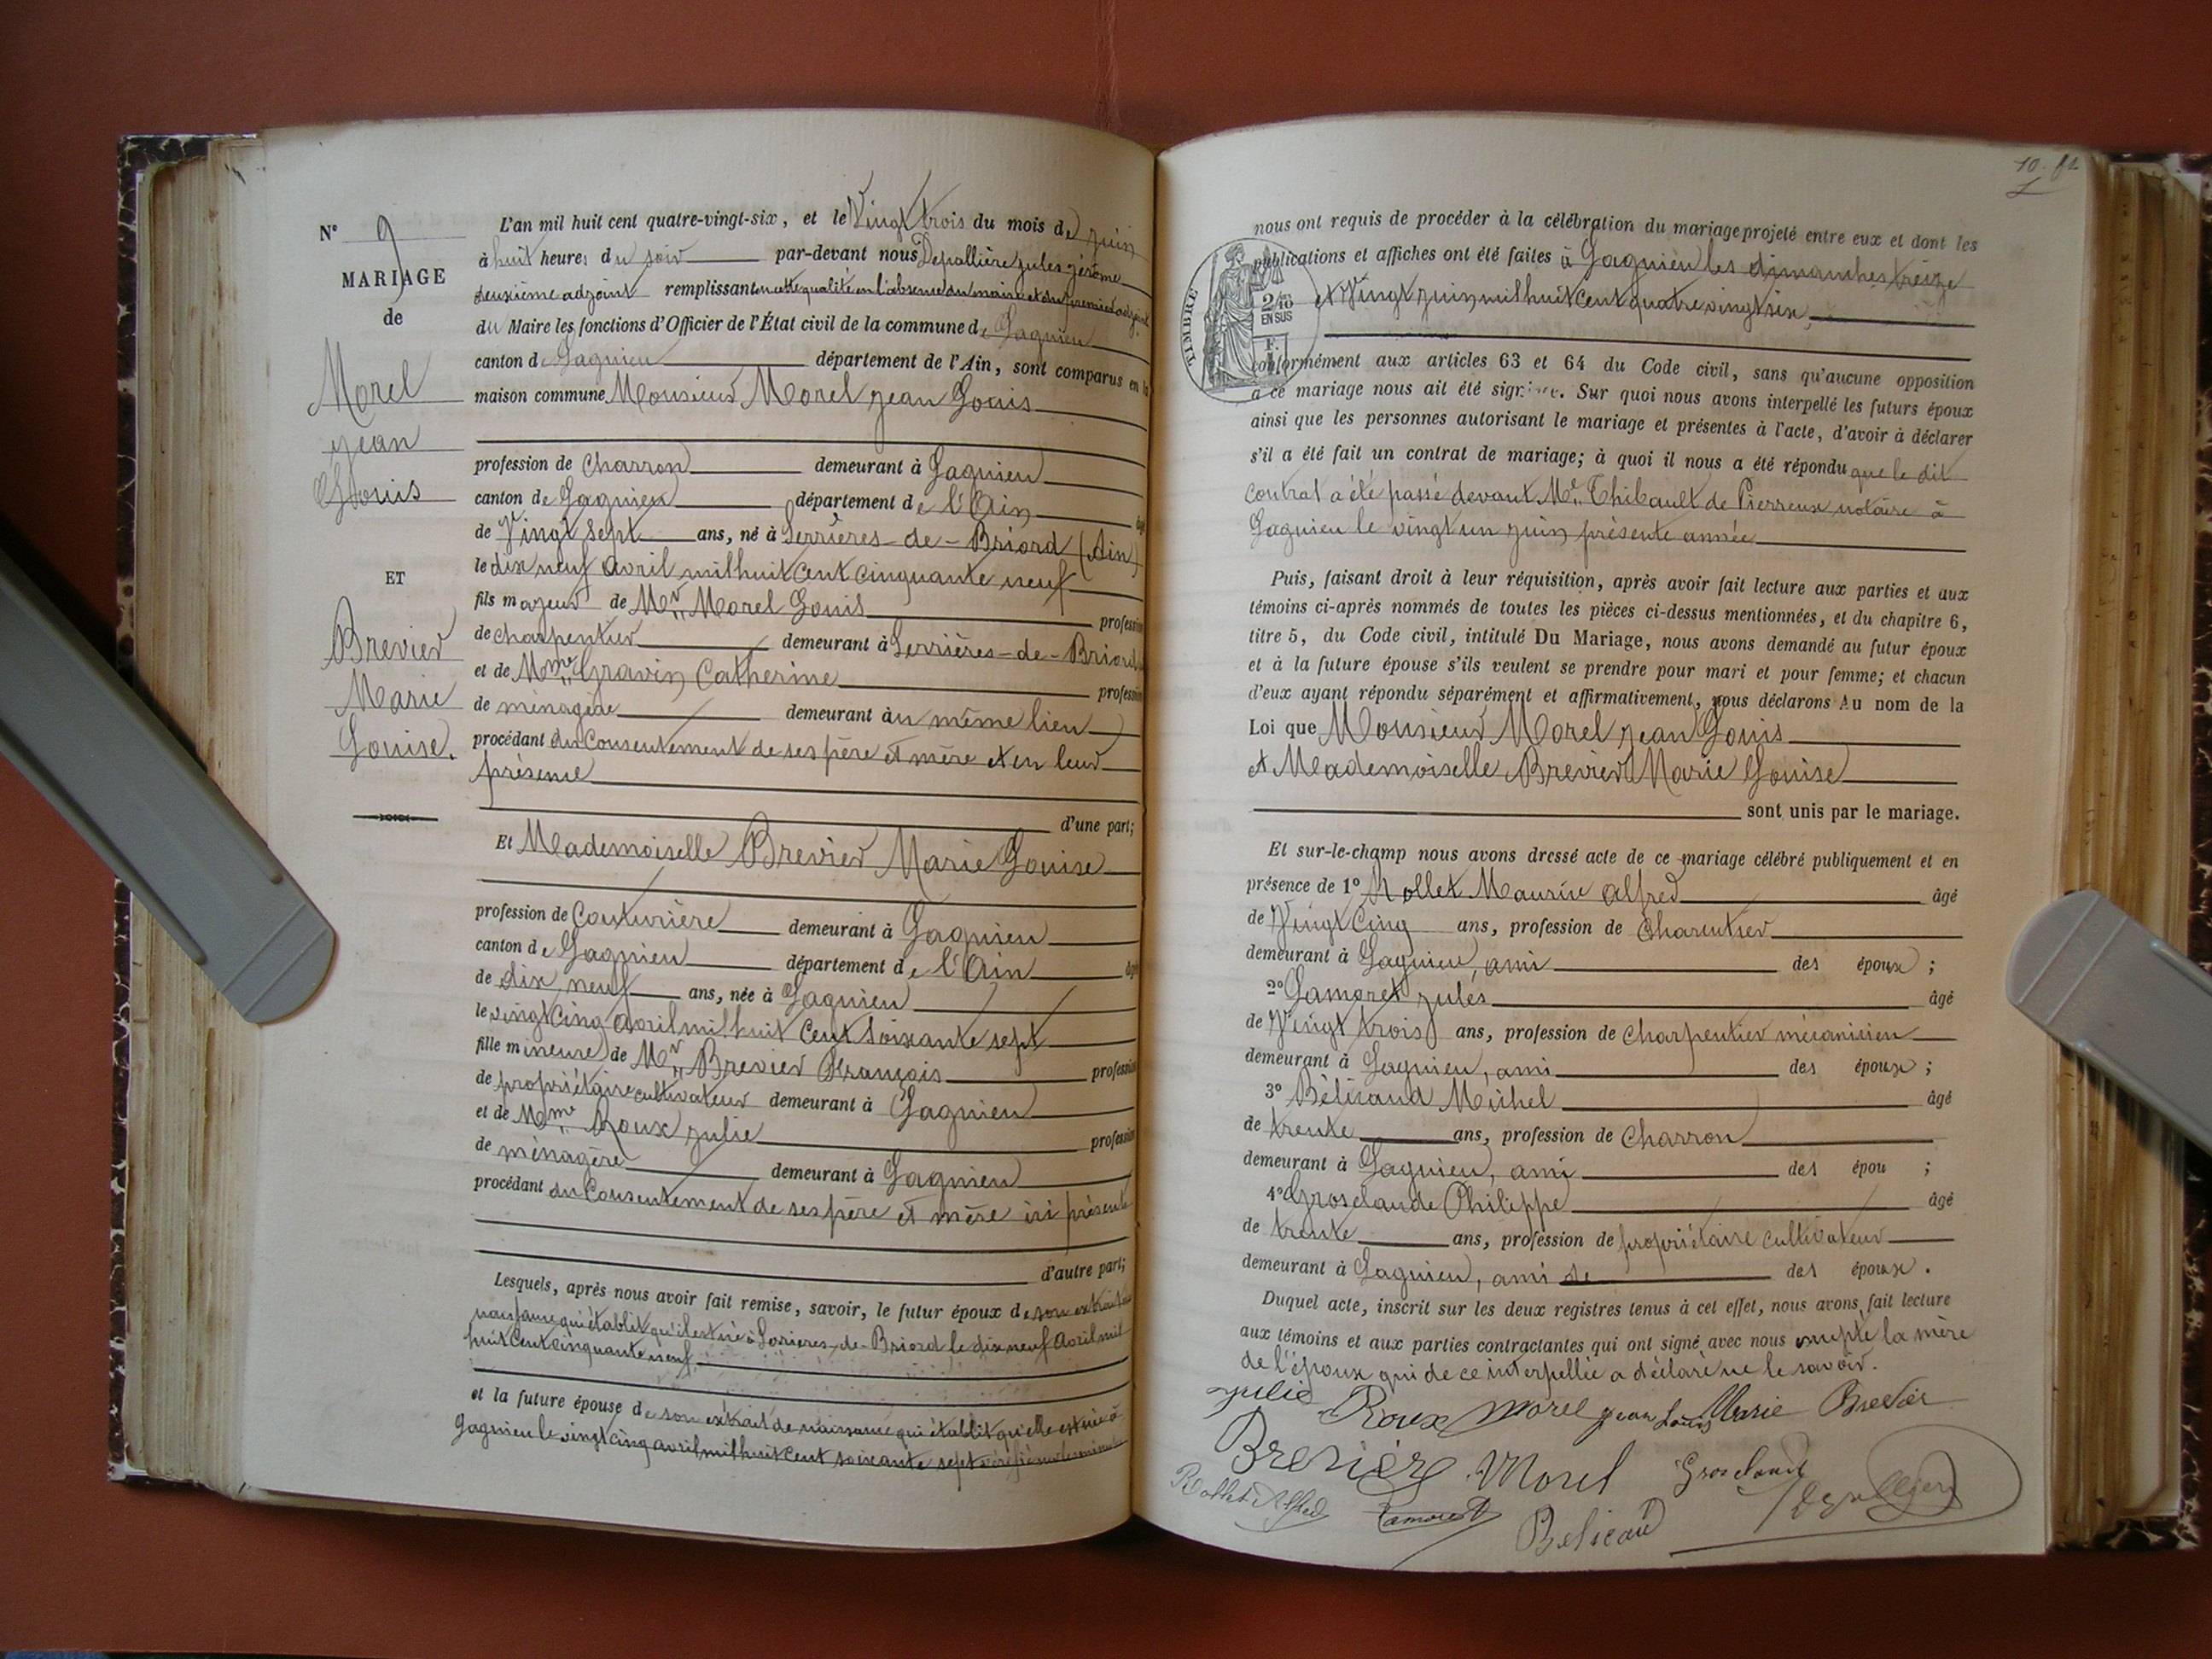 N° 9
MARIAGE
de
Morel
Jean
Louis
ET
Brevier
Marie
Louise.
L'an mil huit cent quatre-vingt-six, et le Vingt trois du mois de juin
à huit heures du soir par-devant nous Depallière Jules Jérôme
deuxième adjoint remplissant en cette qualité en l'absence du maire et du premier adjoint
du Maire les fonctions d'Officier de l'État civil de la commune de Lagnieu
canton de Lagnieu département de l'Ain, sont comparus en la
maison commune Monsieur Morel Jean Louis
profession de Charron demeurant à Lagnieu
canton de Lagnieu département de l'Ain âgé
de Vingt sept ans, né à Serrières-de-Briord (Ain)
le dix neuf avril mil huit cent cinquante neuf
fils majeur de Mr Morel Louis profession
de charpentier demeurant à Serrières-de-Briord
et de Mme Gravin Catherine profession
de ménagère demeurant au même lieu
procédant du Consentement de ses père et mère et en leur
présence
d'une part;
Et Mademoiselle Brevier Marie Louise
profession de Couturière demeurant à Lagnieu
canton de Lagnieu département de l'Ain âgé
de dix neuf ans, née à Lagnieu
le vingt cinq avril mil huit cent soixante sept
fille mineure de Mr Brevier François profession
de propriétaire cultivateur demeurant à Lagnieu
et de Mme Roux Julie profession
de ménagère demeurant à Lagnieu
procédant du Consentement de ses père et mère ici présents
d'autre part;
Lesquels, après nous avoir fait remise, savoir, le futur époux de son extrait de
naissance qui établit qu'il est né à Serrières-de-Briord le dix neuf avril mil
huit cent cinquante neuf
et la future épouse de son extrait de naissance qui établit qu'elle est née à
Lagnieu le vingt cinq avril mil huit cent soixante sept
10.
TIMBRE
2/10 EN SUS
nous ont requis de procéder à la célébration du mariage projeté entre eux et dont les
publications et affiches ont été faites à Lagnieu les dimanches treize
et Vingt juin mil huit cent quatre vingt six,
conformément aux articles 63 et 64 du Code civil, sans qu'aucune opposition
à ce mariage nous ait été signifiée. Sur quoi nous avons interpellé les futurs époux
ainsi que les personnes autorisant le mariage et présentes à l'acte, d'avoir à déclarer
s'il a été fait un contrat de mariage; à quoi il nous a été répondu que le dit
contrat a été passé devant Me Thibault de Pierreux notaire à
Lagnieu le vingt un juin présente année
Puis, faisant droit à leur réquisition, après avoir fait lecture aux parties et aux
témoins ci-après nommés de toutes les pièces ci-dessus mentionnées, et du chapitre 6,
titre 5, du Code civil, intitulé Du Mariage, nous avons demandé au futur époux
et à la future épouse s'ils veulent se prendre pour mari et pour femme; et chacun
d'eux ayant répondu séparément et affirmativement, nous déclarons Au nom de la
Loi que Monsieur Morel Jean Louis
et Mademoiselle Brevier Marie Louise
sont unis par le mariage.
Et sur-le-champ nous avons dressé acte de ce mariage célébré publiquement et en
présence de 1° Rollet Maurice Alfred âgé
de Vingt Cinq ans, profession de Charcutier
demeurant à Lagnieu, ami des époux;
2° Lamoret Jules âgé
de Vingt trois ans, profession de Charpentier mécanicien
demeurant à Lagnieu, ami des époux;
3° Béliraud Michel âgé
de trente ans, profession de Charron
demeurant à Lagnieu, ami des épou ;
4° Grosclaude Philippe âgé
de trente ans, profession de propriétaire cultivateur
demeurant à Lagnieu, ami de des époux.
Duquel acte, inscrit sur les deux registres tenus à cet effet, nous avons fait lecture
aux témoins et aux parties contractantes qui ont signé avec nous excepté la mère
de l'époux qui de ce interpellée a déclaré ne le savoir.
Julie Roux Morel Jean Louis Marie Brevier
Brevière Morel Grosclaude
Rollet Alfred Lamoret